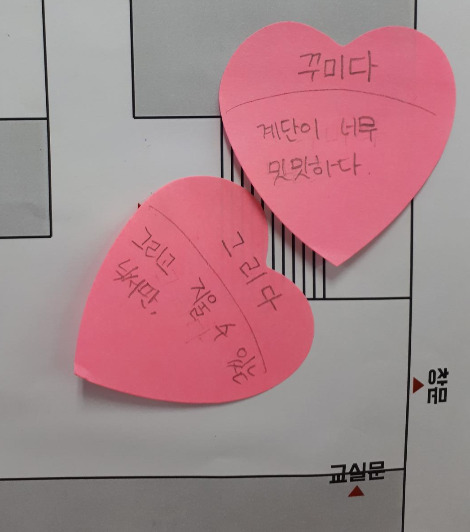 꾸미다
계단이 너무
밋밋하다.
그리다
그리고 지울 수 있는
낙서판,
창문
교실문